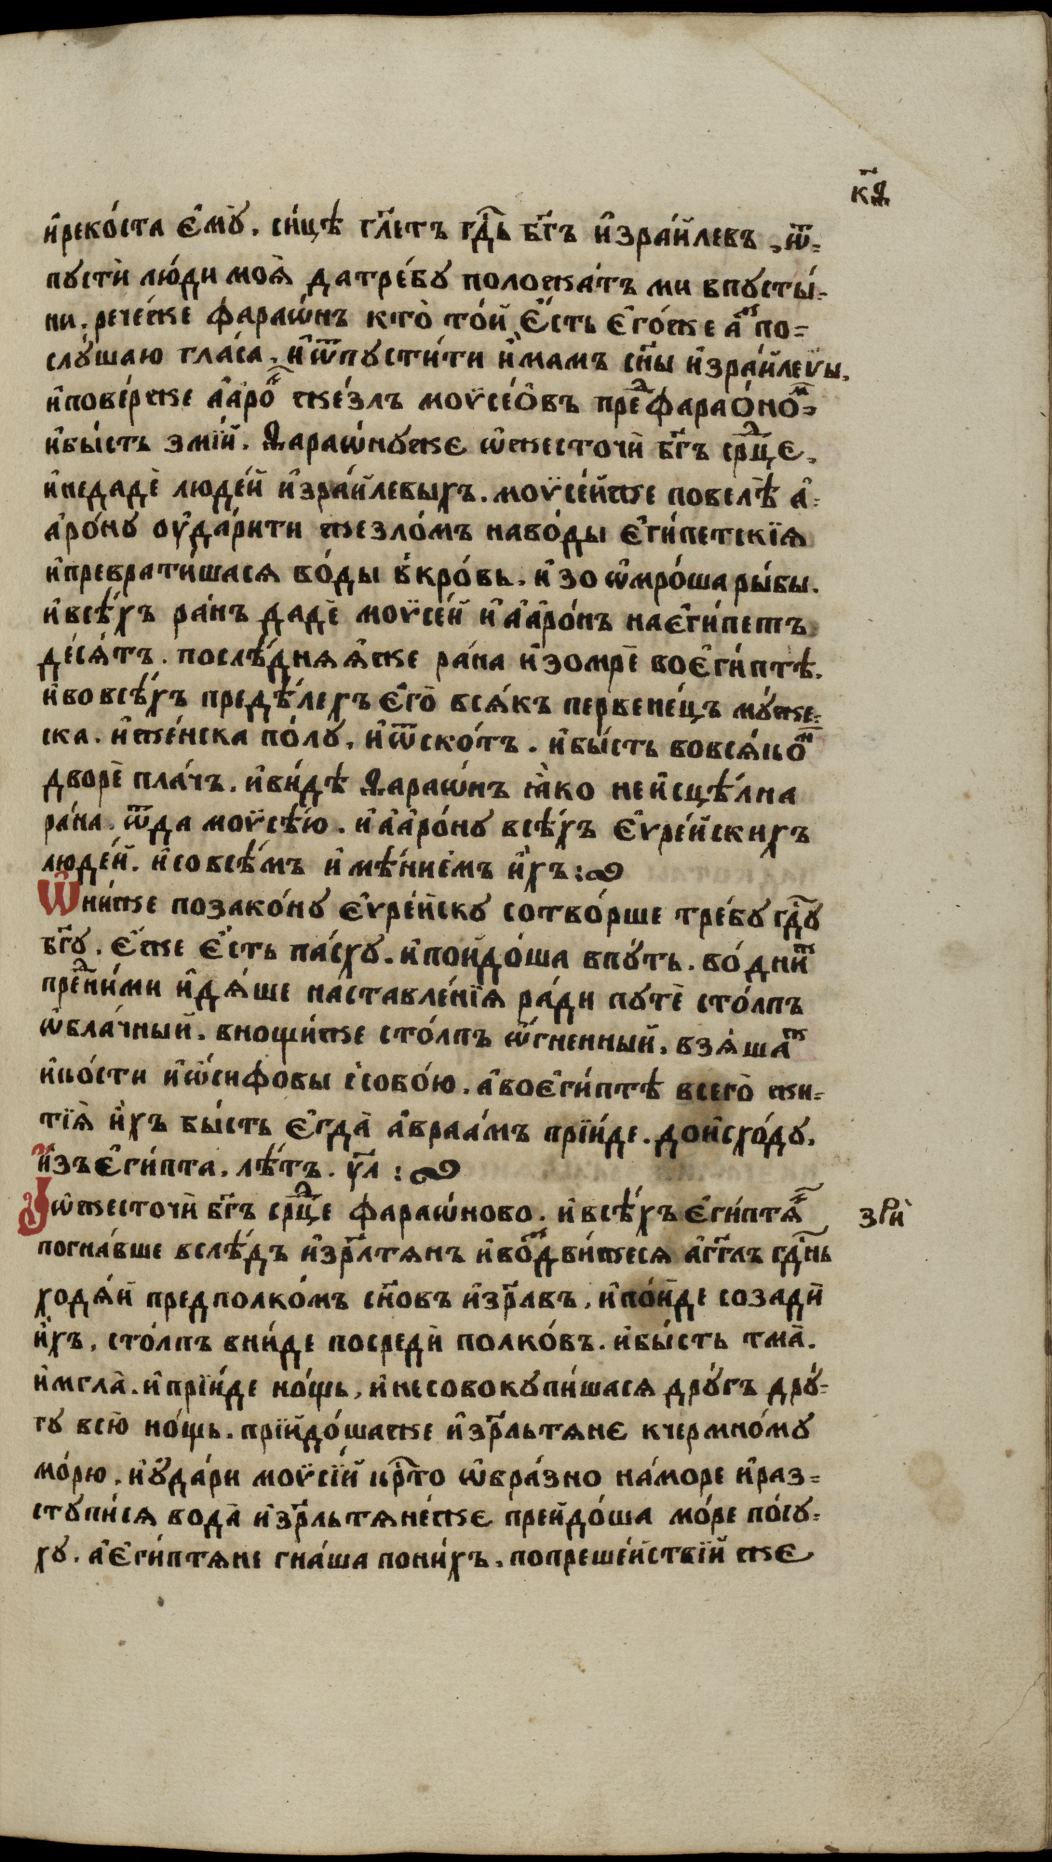 к҃ѳ
и҆реко́ста є҆мꙋ̀. си́цѣ гл҃етъ гд҇ь бг҃ъ и҆зра́илевъ , ѿ=
пꙋстѝ лю́ди моѧ̀ датре́бꙋ положа́тъ ми впꙋсты́=
ни . рече́же фараѡ́нъ кто̀ то́й є҆́сть є҆го́же а҆́зъ по=
слꙋ́шаю гла́са . и҆ѿпꙋсти́ти и҆́мамъ сн҃ы и҆зра́илеѵы .
и҆пове́рже а҆аро́н же́злъ моѵсео́въ пре҇д фарао́ном=
и҆бы́сть змі́й . Фараѡ́нꙋже ѡ҆жесточѝ бг҃ъ ср҇дце .
и҆недадѐ люде́й и҆зра́илевыхъ . моѵсе́йже повелѣ̀ а҆=
аро́нꙋ оу҆да́рити жезло́мъ наво́ды є҆ги́петскїѧ
и҆преврати́шасѧ во́ды в̾кро́вь . и҆ зо ѡ҆мро́ша ры́бы .
и҆всѣ́хъ ра́нъ дадѐ моѵсе́й и҆ а҆аро́нъ наєги́петъ
де́сѧ́тъ . послѣ́днѧѧже ра́на и҆зомрѐ воєги́птѣ .
и҆во всѣ́хъ предѣ́лехъ є҆гѡ̀ всѧ́къ первене́цъ мꙋ́же=
ска . и҆ же́нска по́лꙋ , и҆ѿско́тъ . и҆бы́сть вовсѧ́ком
дворѐ пла́чъ . и҆ви́дѣ Фараѡ́нъ ꙗ҆́ко неи҆сцѣ́лна
ра́на . ѿда моѵсѣ́ю . и҆ а҆аро́нꙋ всѣ́хъ є҆ѵре́йскихъ
люде́й . и҆совсѣ́мъ и҆мѣ́нием и҆́хъ :
Ѡ҆ни́же позако́нꙋ є҆ѵре́йскꙋ сотво́рше тре́бꙋ гд҇ꙋ
бг҃ꙋ . є҆́же є҆́сть па́схꙋ . и҆пойдо́ша впꙋ́ть . во́ дни ж
пре҇дни́ми и҆дѧ́ше наставле́нїѧ ра́ди пꙋтѐ сто́лпъ
ѡ҆бла́чный . внощи́же сто́лпъ ѻ҆́гненный . взѧ́ша ж
и҆ко́сти и҆ѡ́сифовы ссобо́ю . а҆воєги́птѣ всего̀ жи=
тїѧ̀ и҆́хъ бы́сть є҆гда̀ а҆враа́мъ прїи́де . доисхо́дꙋ .
и҆зъєги́пта . лѣ́тъ . ꙋ҃л :
И҆ ѡ҆жесточѝ бг҃ъ ср҇дце фараѡ́ново . и҆всѣ́хъ є҆ги́птѧн
погна́вше вслѣ́дъ и҆зр҃лтѧнъ и҆воздви́жесѧ а҆́гг҃лъ гд҇нь
ходѧ́й предполко́мъ сн҃овъ и҆зр҃лвъ , и҆по́йде созадѝ
и҆́хъ , сто́лпъ вни́де посредѝ полко́въ . и҆бы́сть тма̀ .
и҆мгла̀ . и҆прїи́де но́щь , и҆несовокꙋпи́шасѧ дрꙋ́гъ дрꙋ́=
гꙋ всю̀ но́щь . прїйдо́шаже и҆зр҃льтѧне кчермно́мꙋ
мо́рю , и҆ꙋда́ри моѵсі́й кр҇то ѡ҆бра́зно на́море и҆раз=
стꙋпи́сѧ вода̀ и҆зр҃льтѧне́же прейдо́ша мо́ре по́сꙋ=
хꙋ . а҆єги́птѧне гна́ша пони́хъ . попреше́йствїй же
зрѝ